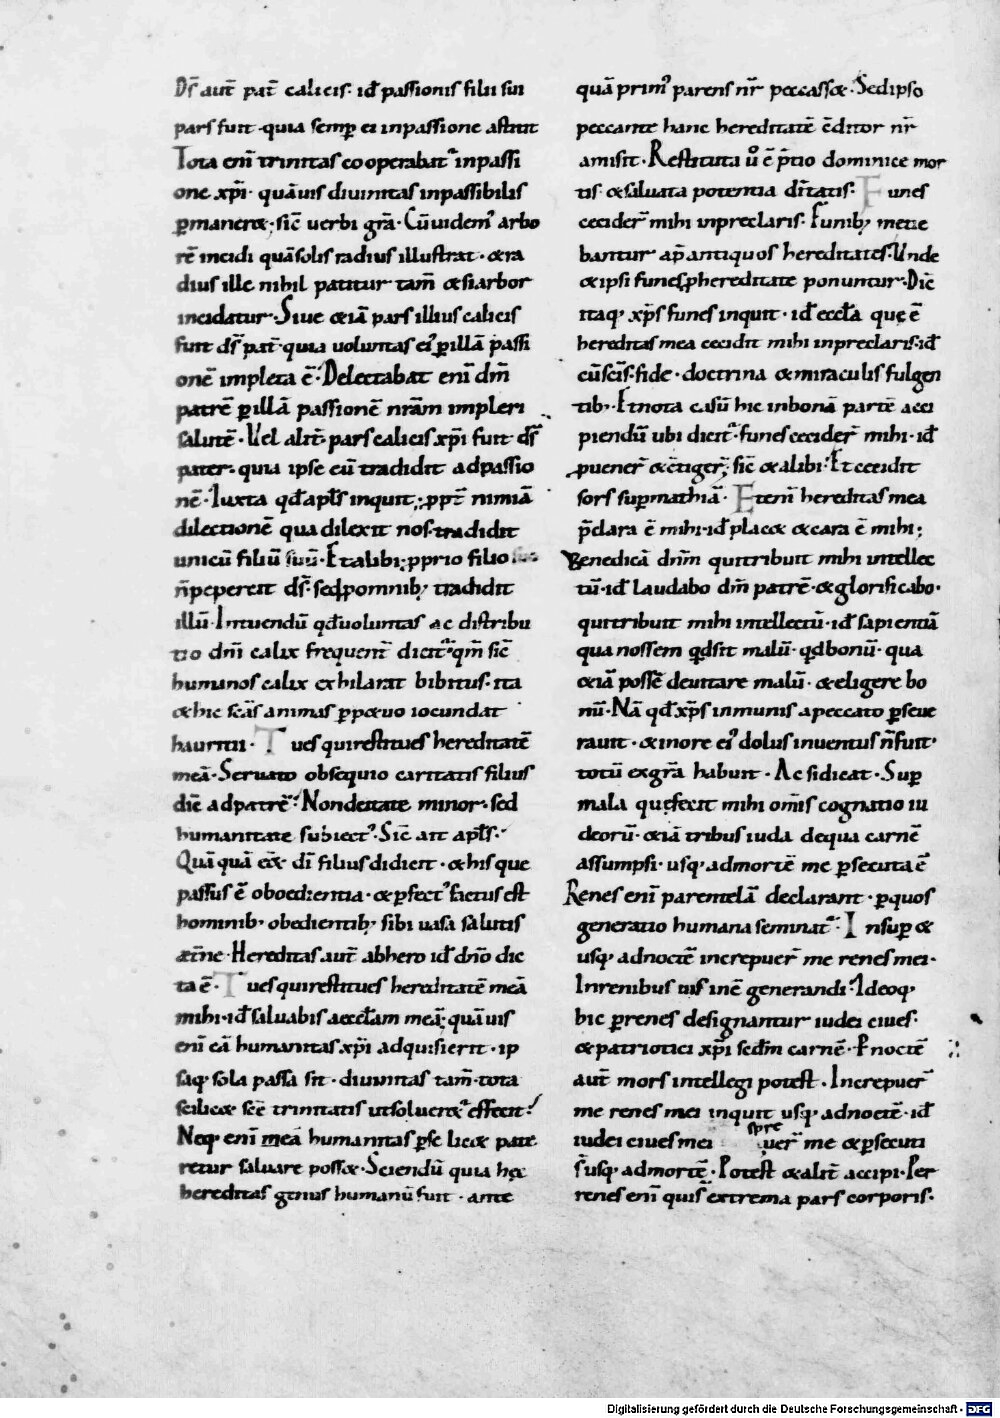 Ds̄ aut̄ pat̄ calicis· id̄ passionis filii sui
pars fuit· quia semp̄ ei inpassione astitit
Tota eni̅ trinitas cooperabat᷑ inpassi
one xp̄i· quāuis diuinitas inpassibilis
ꝑmaner&· sic̄ uerbi gr̄a· Cū uidem᷒ arbo
rē incidi quā solis radius illustrat· &ra
dius ille nihil patitur tam̄ &siarbor
incidatur· Siue &iā pars illius calicis
fuit ds̄ pat̄· quia uoluntas ei᷒ ꝑillā passi
onē impleta ē· Delectabat eni̅ dm̄
patrē ꝑillā passionē nr̄am impleri
salutē· Vel alit̄ pars calicis xp̄i fuit ds̄
pater· quia ipse eū tradidit adpassio
nē· Iuxta qd̄ apl̄s inquit; ꝓpt̄ nimiā
dilectionē qua dilexit nos· tradidit
unicū filiū suū· Et alibi; ꝓprio filio
n̄ pepercit ds̄· sed ꝓ omnib; tradidit
illū· Intuendū qd̄ uoluntas ac distribu
tio dn̄i calix frequent̄ dicit᷑· qm̄ sic̄
humanos calix exhilarat bibitus· ita
&hic sc̄as animas ꝑp&uo iocundat
hauritu· Tu es qui restitues hereditatē
meā· Seruato obsequio caritatis filius
dic̄ adpatrē· Non deitate minor· sed
humanitate subiect᷒· Sic̄ ait apl̄s·
Quāquā eēt di̅ filius didicit· &his que
passus ē oboedientia· &ꝑfect᷒ factus est
hominib; obedientib; sibi uasa salutis
æt̄ne· Hereditas aut̄ abhero id̄ dn̄o dic
ta ē· Tu es qui restitues hereditatē meā
mihi· id̄ saluabis aeccl̄am meā; quāuis
eni̅ eā humanitas xp̄i adquisierit· ip
saq; sola passa sit· diuinitas tam̄ tota
scilic& sc̄e trinitatis utsoluer&᷑ effecit!
Neq; eni̅ mea humanitas ꝑse lic& pate
retur saluare poss&· Sciendū quia hęc
hereditas genus humanū fuit· ante
quā prim᷒ parens nr̄ peccass&· Sed ipso
peccante hanc hereditatē cōditor nr̄
amisit· Restituta ů ē p̄tio dominice mor
tis· &saluata potentia di̅tatis· Funes
cecider̄ mihi inpreclaris· Funib; metie
bantur ap̄ antiquos hereditates· Unde
&ipsi funes ꝓ hereditate ponuntur· Dic̄
itaq; xp̄s funes inquit· id̄ eccl̄a que ē
hereditas mea cecidit mihi inpreclaris· id̄
cū sc̄is· fide· doctrina &miraculis fulgen
tib;· Et nota casū hic inbonā partē acci
piendū ubi dicit᷑· funes cecider̄ mihi· id̄
ꝓuener̄ &cōtiger̄; sic̄ &alibi· Et cecidit
sors sup̄ mathiā· Eteni̅ hereditas mea
p̄clara ē mihi· id̄ plac& &cara ē mihi;
Benedicā dnm̄ qui tribuit mihi intellec
tū· id̄ Laudabo dm̄ patrē· &glorificabo·
qui tribuit mihi intellectū· id̄ sapientiā
qua nossem qd̄ sit malū· qd̄ bonū· qua
&iā possē deuitare malū· &eligere bo
nū· Nā qd̄ xp̄s inmunis apeccato ꝑseue
rauit· &inore ei᷒ dolus inuentus n̄ fuit·
totū exgr̄a habuit· Ac si dicat· Sup̄
mala que fecit mihi om̄is cognatio iu
deorū· &iā tribus iuda dequa carnē
assumpsi· usq; admortē me ꝑsecuta ē
Renes eni̅ parentelā declarant· ꝑquos
generatio humana seminat᷑· Insup̄ &
usq; adnoctē increpuer̄ me renes mei·
Inrenibus uis inē generandi· Ideoq;
hic ꝑrenes designantur iudei ciues·
&patriotici xp̄i sed̄m carnē· P noctē
aut̄ mors intellegi potest· Increpuer̄
me renes mei inquit usq; adnoctē· id̄
iudei ciues mei spreuer̄ me &ꝑsecuti
s̄ usq; admortē· Potest &alit̄ accipi· Per
renes eni̅ quis extrema pars corporis·
Digitalisierung gefördert durch die Deutsche Forschungsgemeinschaft - DFG